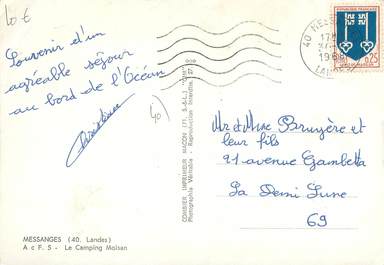 10 €
Souvenir d'un
agréable séjour
au bord de l'Océan
40)
COMBIER IMPRIMEUR MACON (71. S.-&-L.) "CIM"
Photographie Véritable - Reproduction Interdite. 27
REPUBLIQUE FRANÇAISE
0,25
40
1968
LANDES
Mr et Mme Bruyère et
leur fils
91 avenue Gambetta
La Demi Lune
69
MESSANGES (40. Landes)
A c F 5 - Le Camping Moïsan